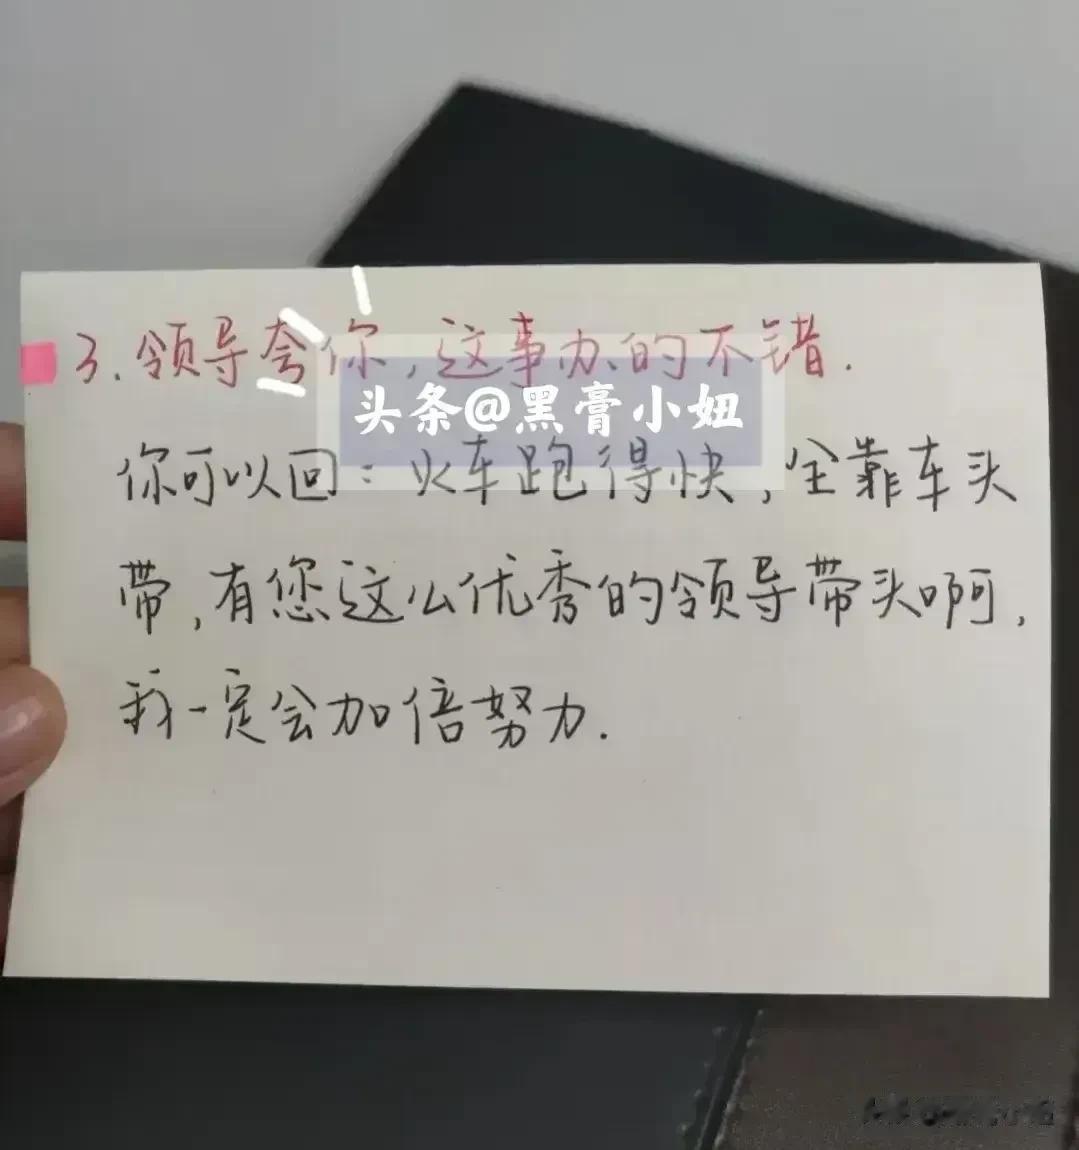 3.领导夸你,这事办的不错.
头条@黑膏小妞
你可以回:火车跑得快,全靠车头
带,有您这么优秀的领导带头啊,
我一定会加倍努力.